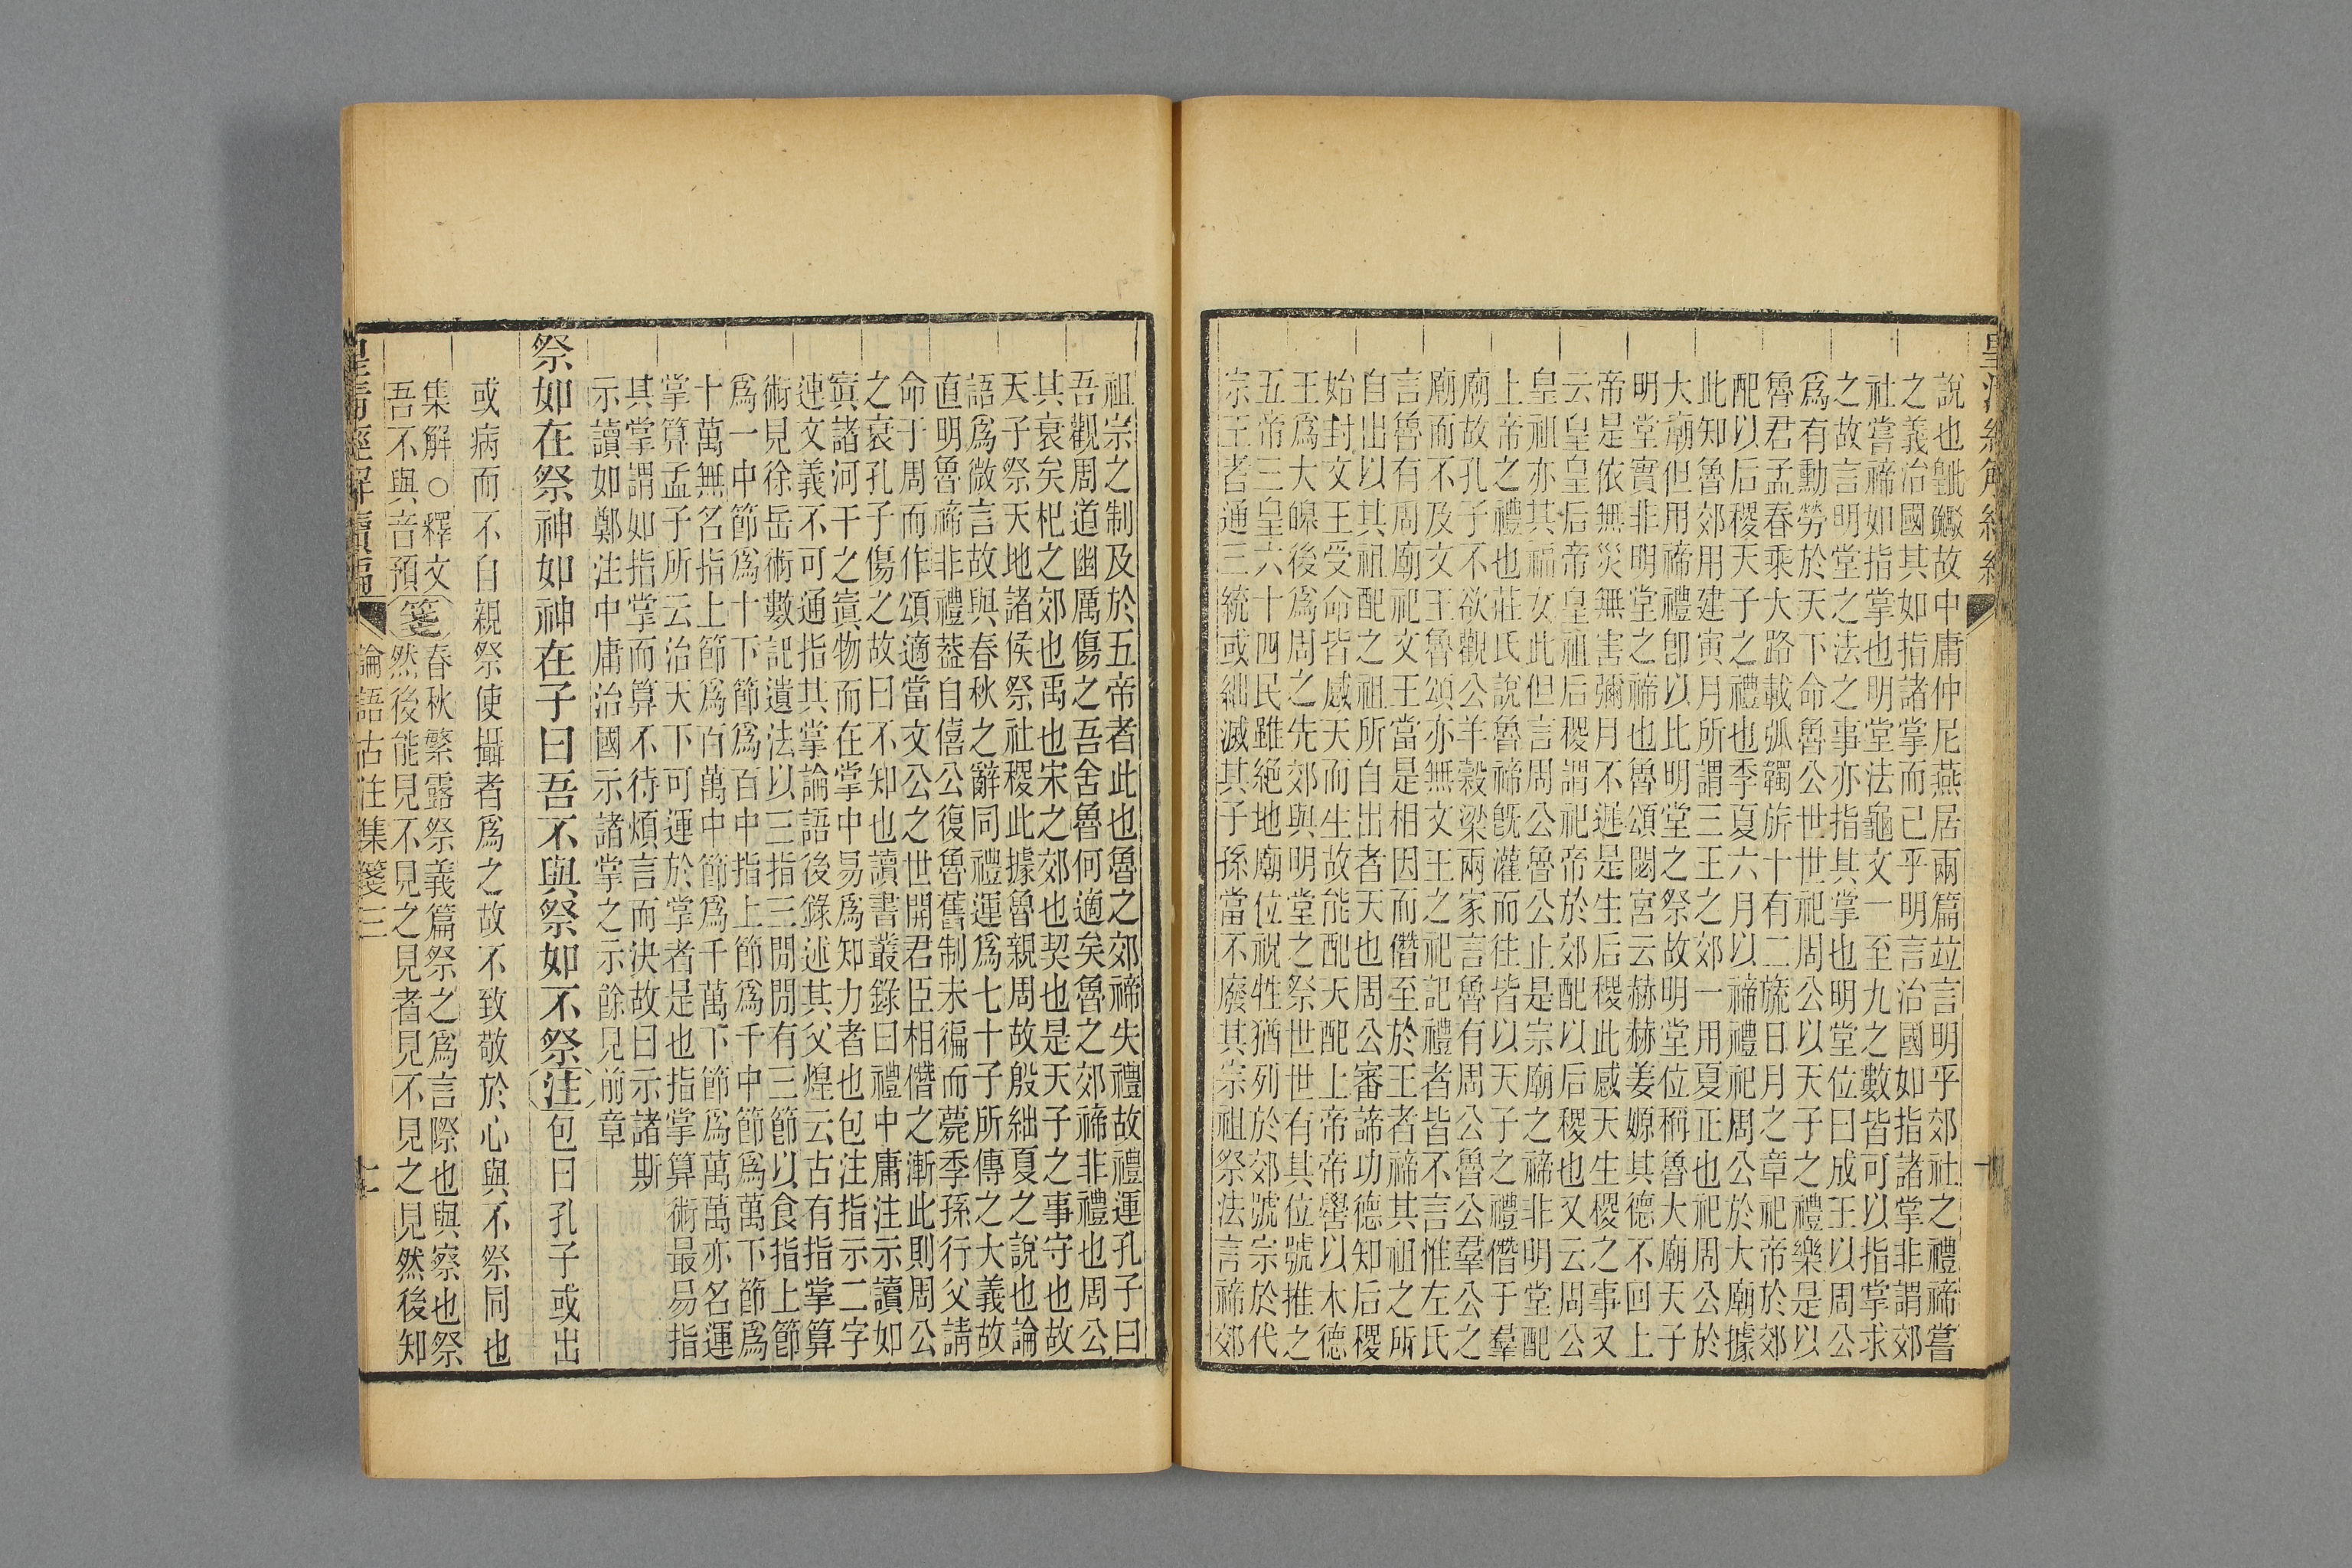 說也龇䶥故中庸仲尼燕居兩篇竝言明乎郊社之禮禘嘗
之義治國其如指諸掌而已乎明言治國如指諸掌非謂郊
社嘗禘如指掌也明堂法龜文一至九之數皆可以指掌求
之故言明堂之法之事亦指其掌也明堂位曰成王以周公
爲有勳勞於天下命魯公世世祀周公以天子之禮樂是以
魯君孟春乘大路載弧韣旂十有二旒日月之章祀帝於郊
配以后稷天子之禮也季夏六月以禘禮祀周公於大廟據
此知魯郊用建寅月所謂三王之郊一用夏正也祀周公於
大廟但用禘禮卽以比明堂之祭故明堂位稱魯大廟天子
明堂實非明堂之禘也魯頌閟宮云赫赫姜嫄其德不回上
帝是依無災無害彌月不遲是生后稷此感天生稷之事又
云皇皇后帝皇祖后稷謂祀帝於郊配以后稷也又云周公
皇祖亦其福女此但言周公魯公止是宗廟之禘非明堂配
上帝之禮也莊氏說魯禘旣灌而往皆以天子之禮僭于羣
廟故孔子不欲觀公羊穀梁兩家言魯有周公魯公羣公之
廟而不及文王魯頌亦無文王之祀記禮者皆不言惟左氏
言魯有周廟祀文王當是相因而僭至於王者禘其祖之所
自出以其祖配之祖所自出者天也周公審諦功德知后稷
始封文王受命皆感天而生故能配天配上帝帝嚳以木德
王爲大皞後爲周之先郊與明堂之祭世世有其位號推之
五帝三皇六十四民雖絶地廟位祝牲猶列於郊號宗於代
宗王者通三統或絀滅其子孫當不廢其宗祖祭法言禘郊
祖宗之制及於五帝者此也魯之郊禘失禮故禮運孔子曰
吾觀周道幽厲傷之吾舍魯何適矣魯之郊禘非禮也周公
其衰矣杞之郊也禹也宋之郊也契也是天子之事守也故
天子祭天地諸侯祭社稷此據魯親周故殷絀夏之說也論
語爲微言故與春秋之辭同禮運爲七十子所傳之大義故
直明魯禘非禮葢自僖公復魯舊制未徧而薨季孫行父請
命于周而作頌適當文公之世開君臣相僭之漸此則周公
之衰孔子傷之故曰不知也讀書叢錄曰禮中庸注示讀如
寘諸河干之寘物而在掌中易爲知力者也包注指示二字
連文義不可通指其掌論語後錄述其父煌云古有指掌算
術見徐岳術數記遺法以三指三閒閒有三節以食指上節
爲一中節爲十下節爲百中指上節爲千中節爲萬下節爲
十萬無名指上節爲百萬中節爲千萬下節爲萬萬亦名運
掌算孟子所云治天下可運於掌者是也指掌算術最易指
其掌謂如指掌而算不待煩言而決故曰示諸斯
示讀如鄭注中庸治國示諸掌之示餘見前章
祭如在祭神如神在子曰吾不與祭如不祭注包曰孔子或出
或病而不自親祭使攝者爲之故不致敬於心與不祭同也
集解○釋文箋春秋繁露祭義篇祭之爲言際也與察也祭
吾不與音預然後能見不見之見者見不見之見然後知
皇清經解續編
論語古注集箋三
十一